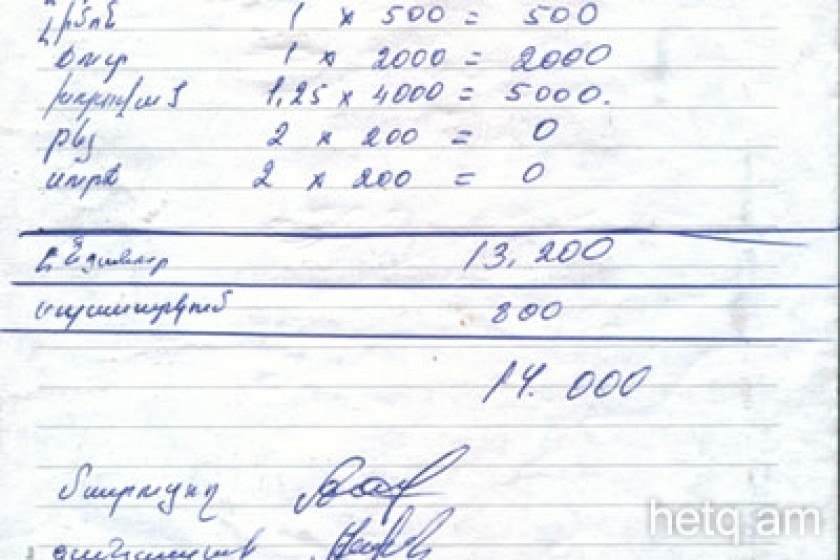 լիմոն 1 x 500 = 500
օղի 1 x 2000 = 2000
խորոված 1,25 x 4000 = 5000.
թեյ 2 x 200 = 0
սուրճ 2 x 200 = 0
Ընդամենը 13,200
սպասարկում 800
14.000
մատուցող
hetq.am